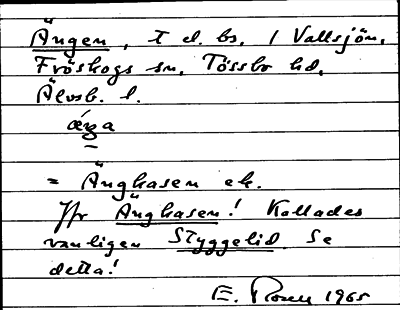 Ängen, t d. bs. i Vallsjön,
Fröskogs sn. Tössbo hd.
Älvsb. l.
ǽ̨ŋa
= Ängkasen ek.
Jfr Ängkasen! Kallades
vanligen Styggelid. Se
detta!
E. Rosell 1965